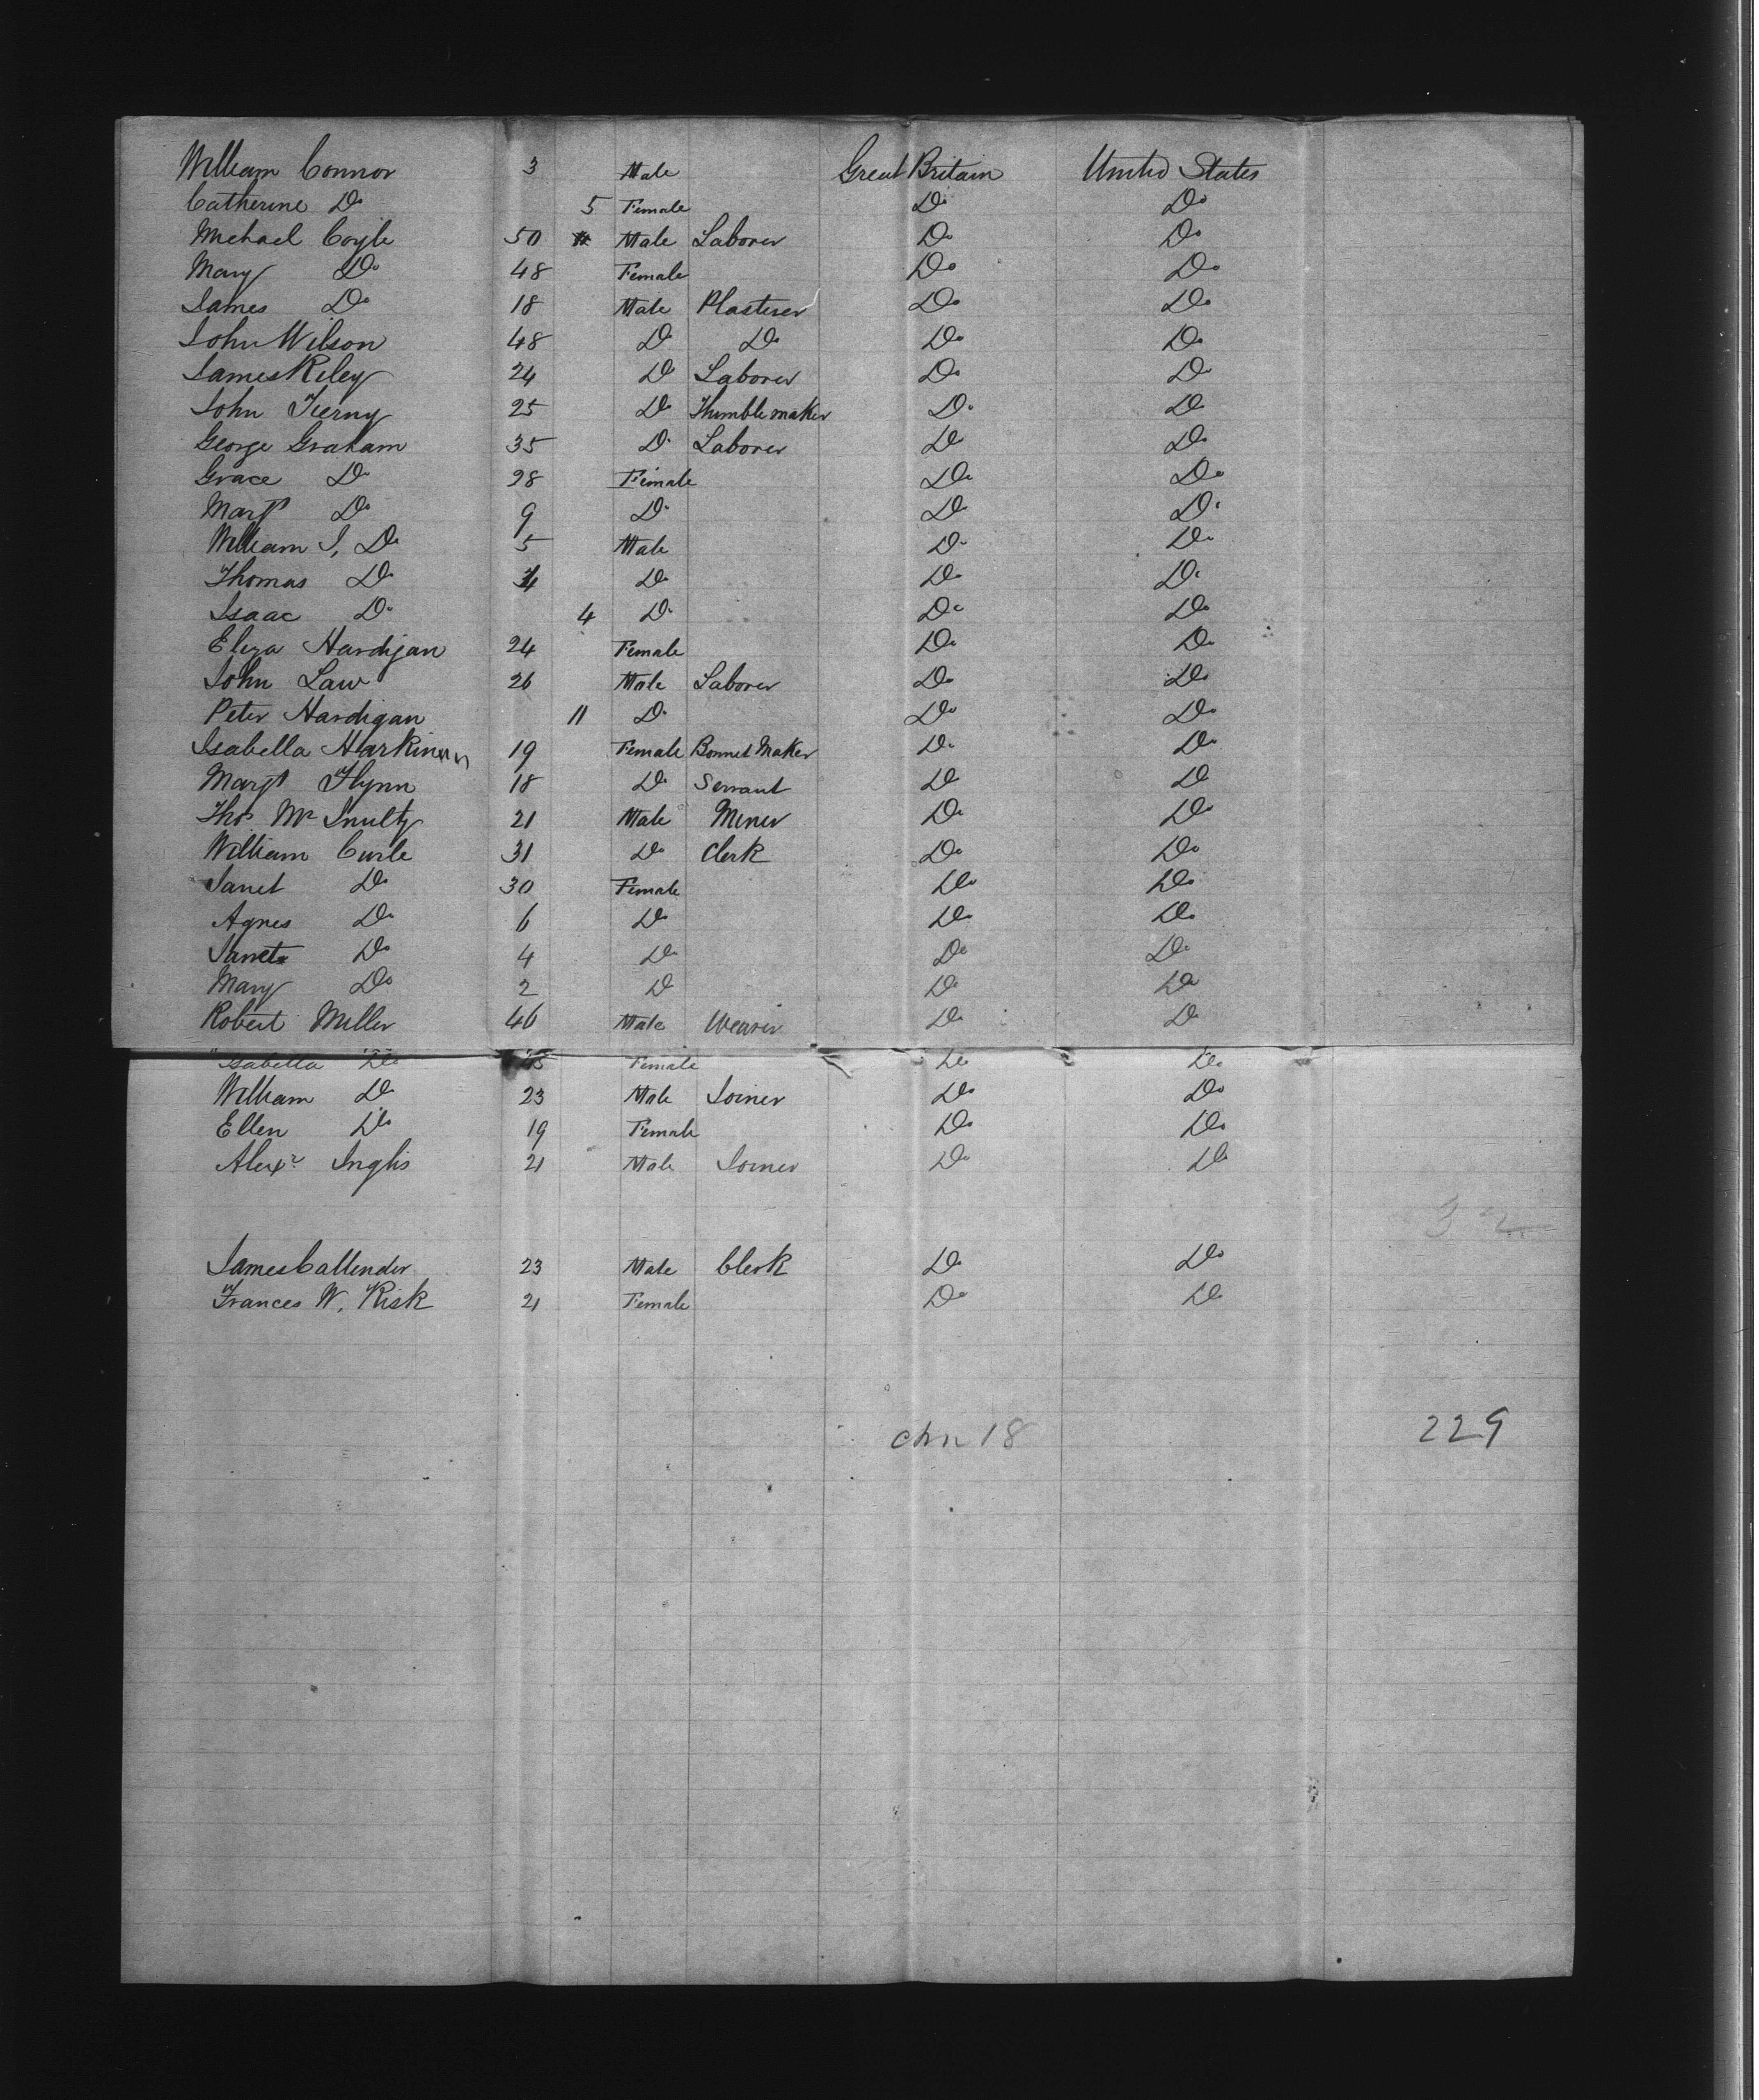 William Connor 3 Male Great Britain United States
Catherine Do 5 Female Do Do
Michael Coyle 50 Male Laborer Do Do
Mary Do 48 Female Do Do
James Do 18 Male Plasterer Do Do
John Wilson 48 Do Do Do Do
James Riley 24 Do Laborer Do Do
John Tierny 25 Do Thimble maker Do Do
George Graham 35 Do Laborer Do Do
Grace Do 28 Female Do Do
Margt Do 9 Do Do Do
William J, Do 5 Male Do Do
Thomas Do Do Do Do
Isaac Do 4 Do Do Do
Eliza Hardigan 24 Female Do Do
John Law 26 Male Laborer Do Do
Peter Hardigan 11 Do Do Do
Isabella 19 Female Bonnet Maker Do Do
Margt Flynn 18 Do Servant Do Do
Thos Mc 21 Male Miner Do Do
William Curle 31 Do Clerk Do Do
Janet Do 30 Female Do Do
Agnes Do 6 Do Do Do
Janet Do 4 Do Do Do
Mary Do 2 Do Do Do
Robert Miller 46 Male Weaver Do Do
Isabella Do Female Do Do
William Do 23 Male Joiner Do Do
Ellen Do 19 Female Do Do
Alexr Inglis 21 Male Joiner Do Do
32
James Callender 23 Male Clerk Do Do
Frances W. Risk 21 Female Do Do
chn 18 229